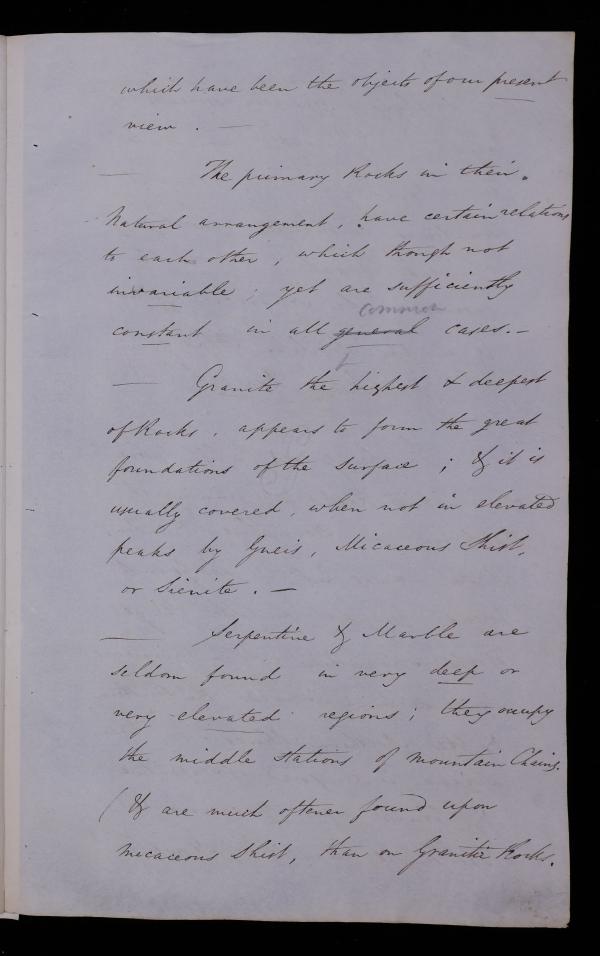 which have been the objects of our present
view . —
— The primary Rocks in their
Natural arrangement, have certain relations
to each other, which though not
invariable; yet are sufficiently
common
constant in all general cases. —
— Granite the highest & deepest
of Rocks, appears to form the great
foundations of the surface ; & it is
usually covered, when not in elevated
peaks by Gneis, Micaceous Shist,
or Sienite. —
— Serpentine & Marble are
seldom found in very deep or
very elevated regions; they occupy
the middle stations of mountain Chains.
( & are much oftener found upon
micaceous Shist, than on Granitic Rocks.